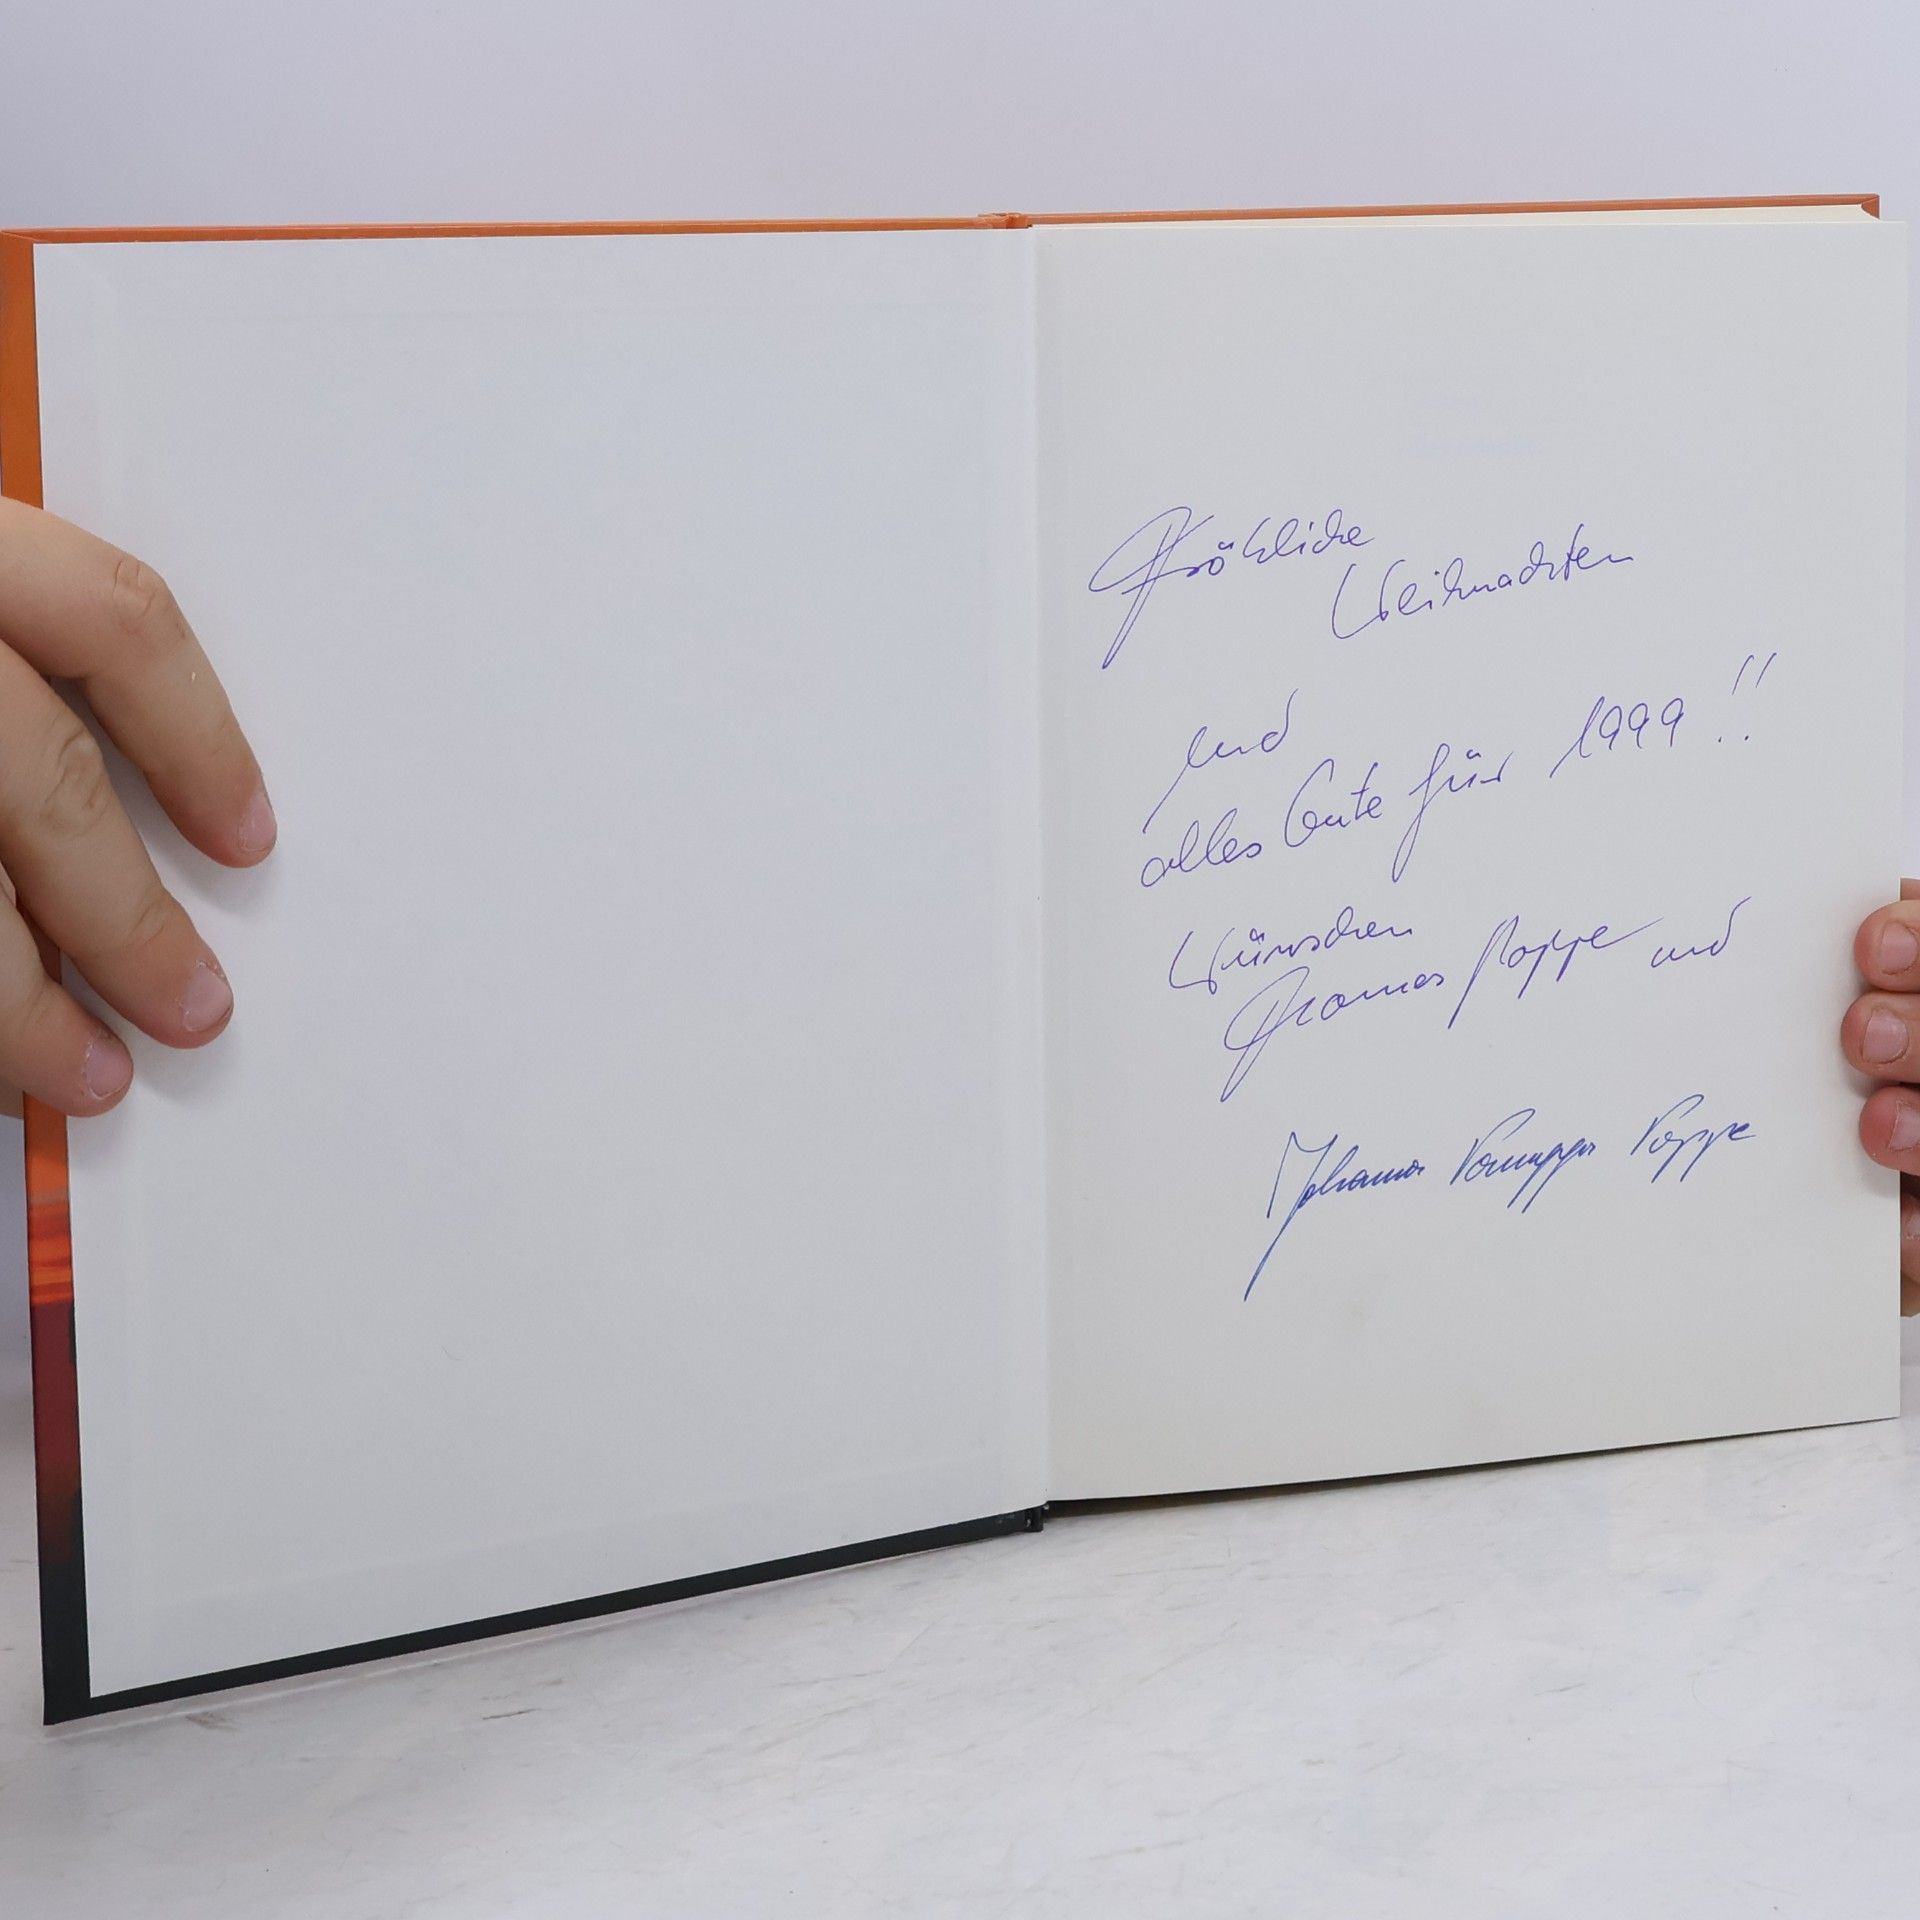 Fröhliche
Weihnachten
und
alles Gute für 1999!!
Wünschen
Thomas Poppe und
Johanna Paungger Poppe